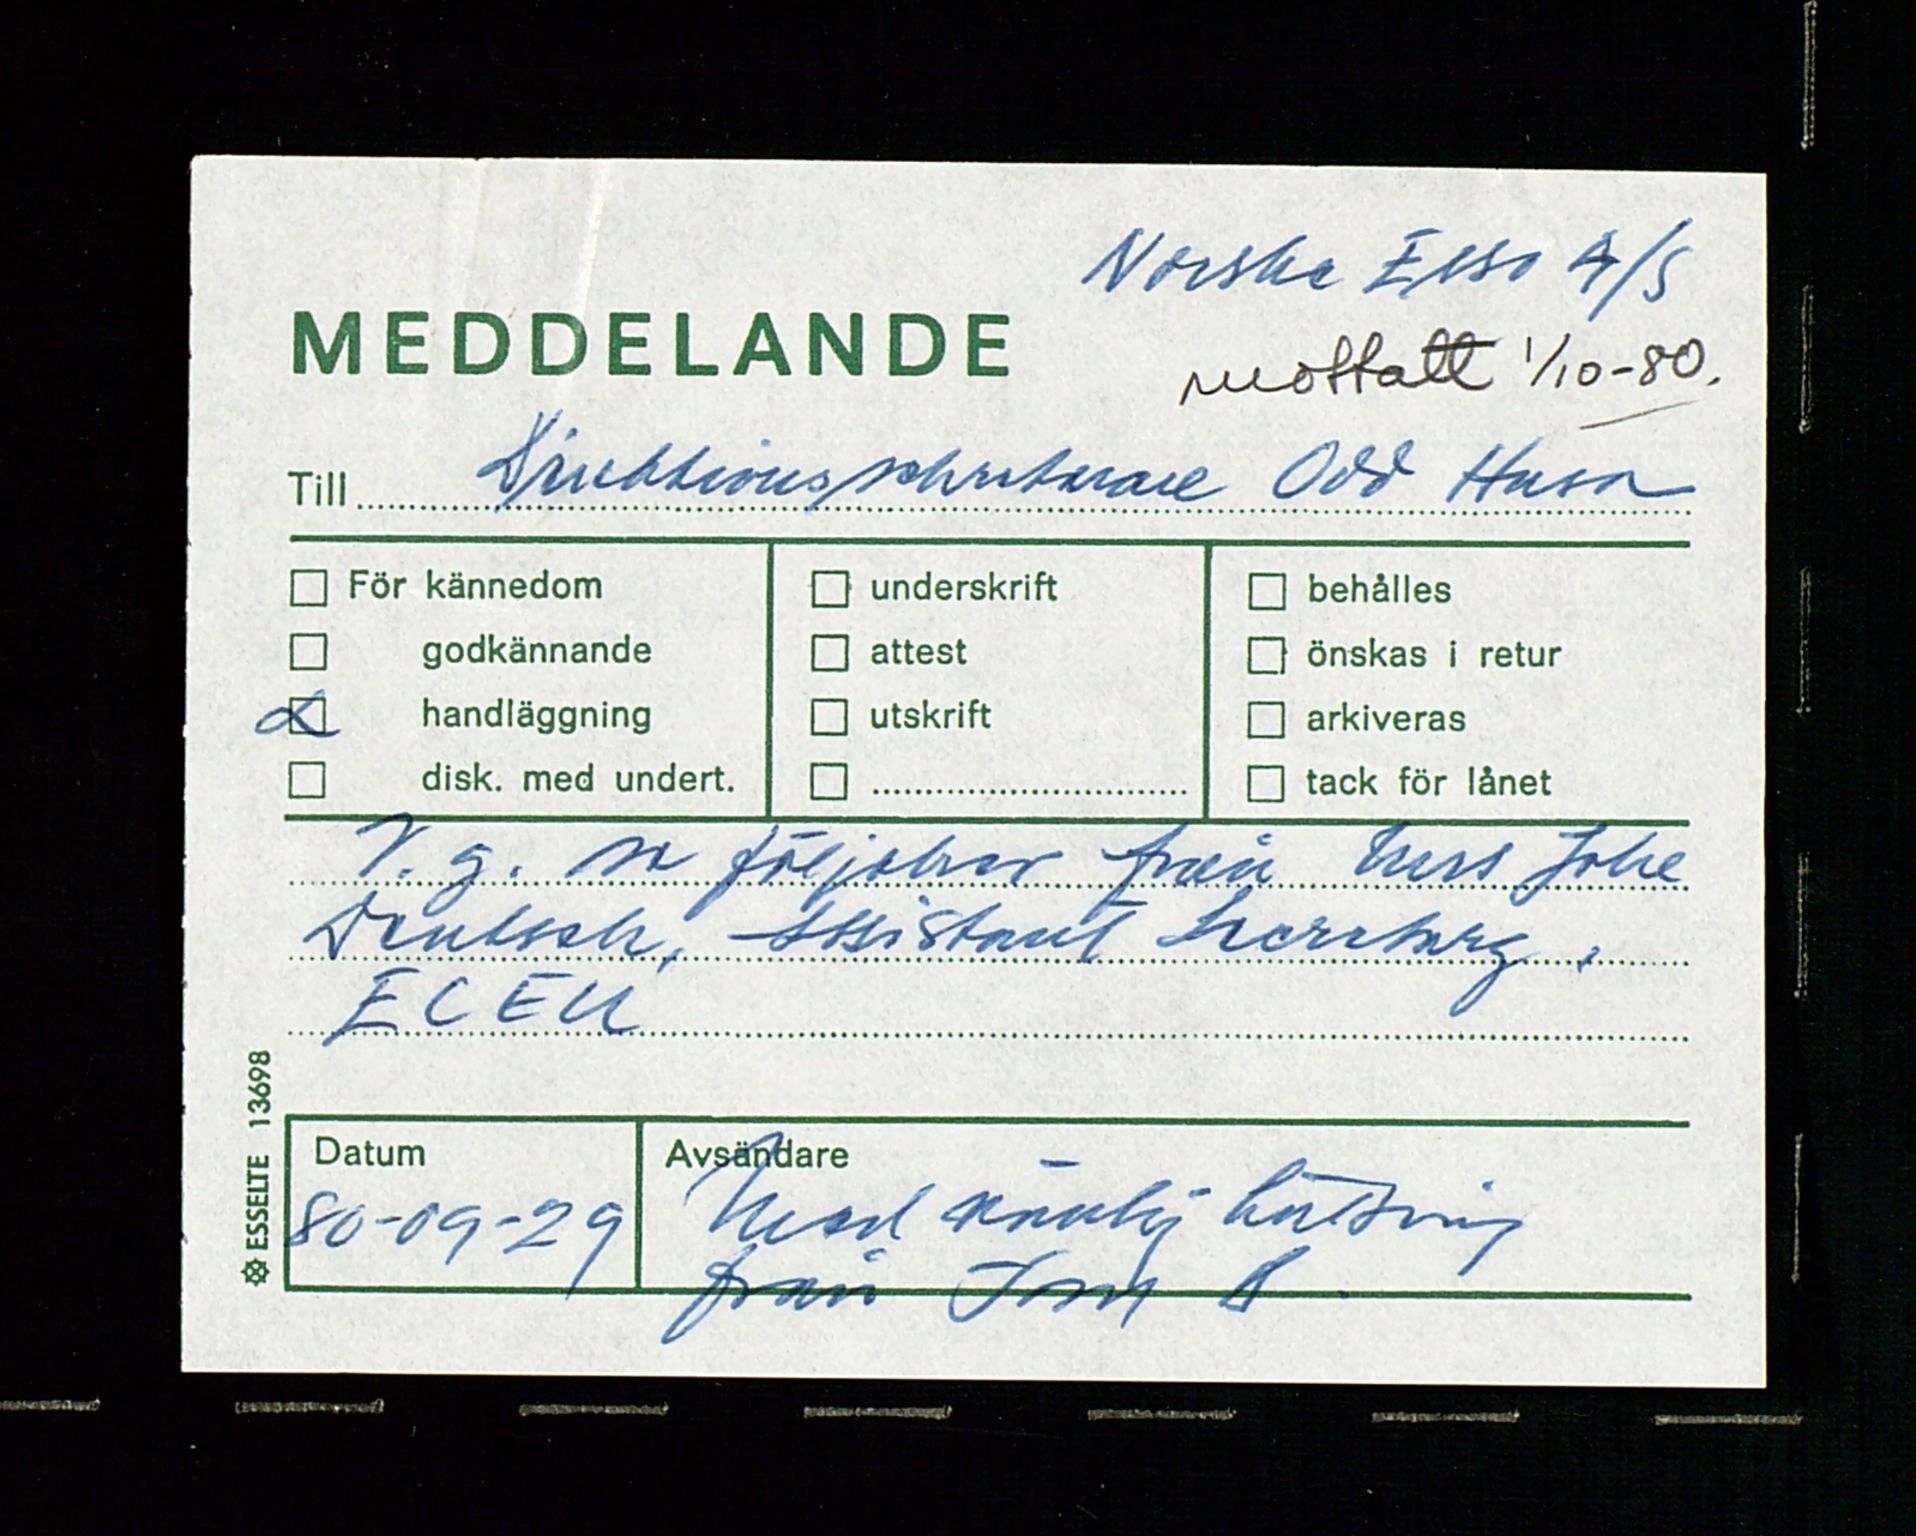 Norske Esso A/S
MEDDELANDE
mottatt 1/10-80.
Till Direktionssekreterare Odd Husa
För kännedom
underskrift
behålles
godkännande
attest
önskas i retur
handläggning
utskrift
arkiveras
disk. med undert.
tack för lånet
V. g. se från
Deutsch, Assistant Secretary,
ECEU
ESSELTE 13698
Datum
Avsändare
80-09-29
Med vänlig hälsning
från